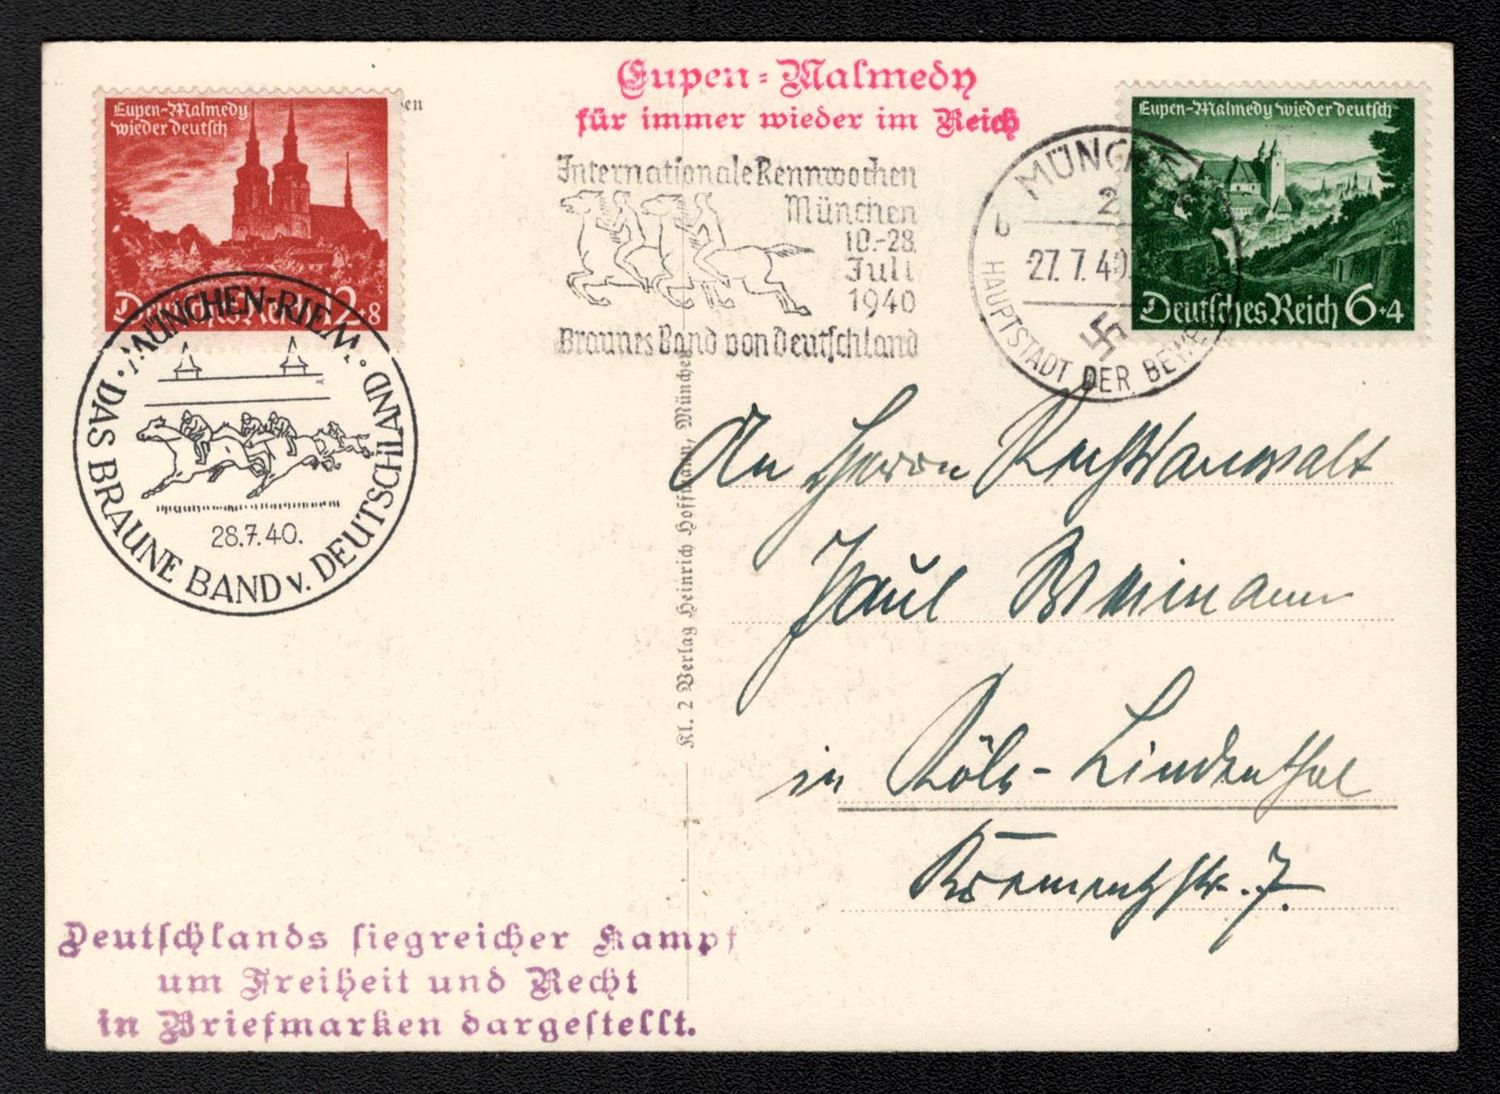 Eupen-Malmedy
wieder deutsch
Deutsches Reich 12+8
en
Eupen=Malmedy
für immer wieder im Reich
Internationale Rennwochen
München
10.-28.
Juli
1940
Braunes Band von Deutschland
MÜNCHEN
2
b
27.7.40
HAUPTSTADT DER BEWE
Eupen-Malmedy wieder deutsch
Deutsches Reich 6+4
MÜNCHEN-RIEM
DAS BRAUNE BAND v. DEUTSCHLAND
28.7.40.
Kl. 2 Verlag Heinrich Hoffmann, München
An Herrn Rechtsanwalt
Paul
in Köln-Lindenthal
Krementzstr. 7.
Deutschlands siegreicher Kampf
um Freiheit und Recht
in Briefmarken dargestellt.